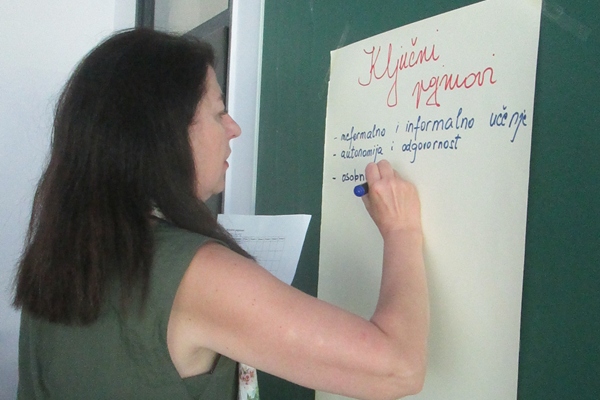 Ključni
pojmovi
- neformalno i informalno učenje
- autonomija i odgovornost
- osobn